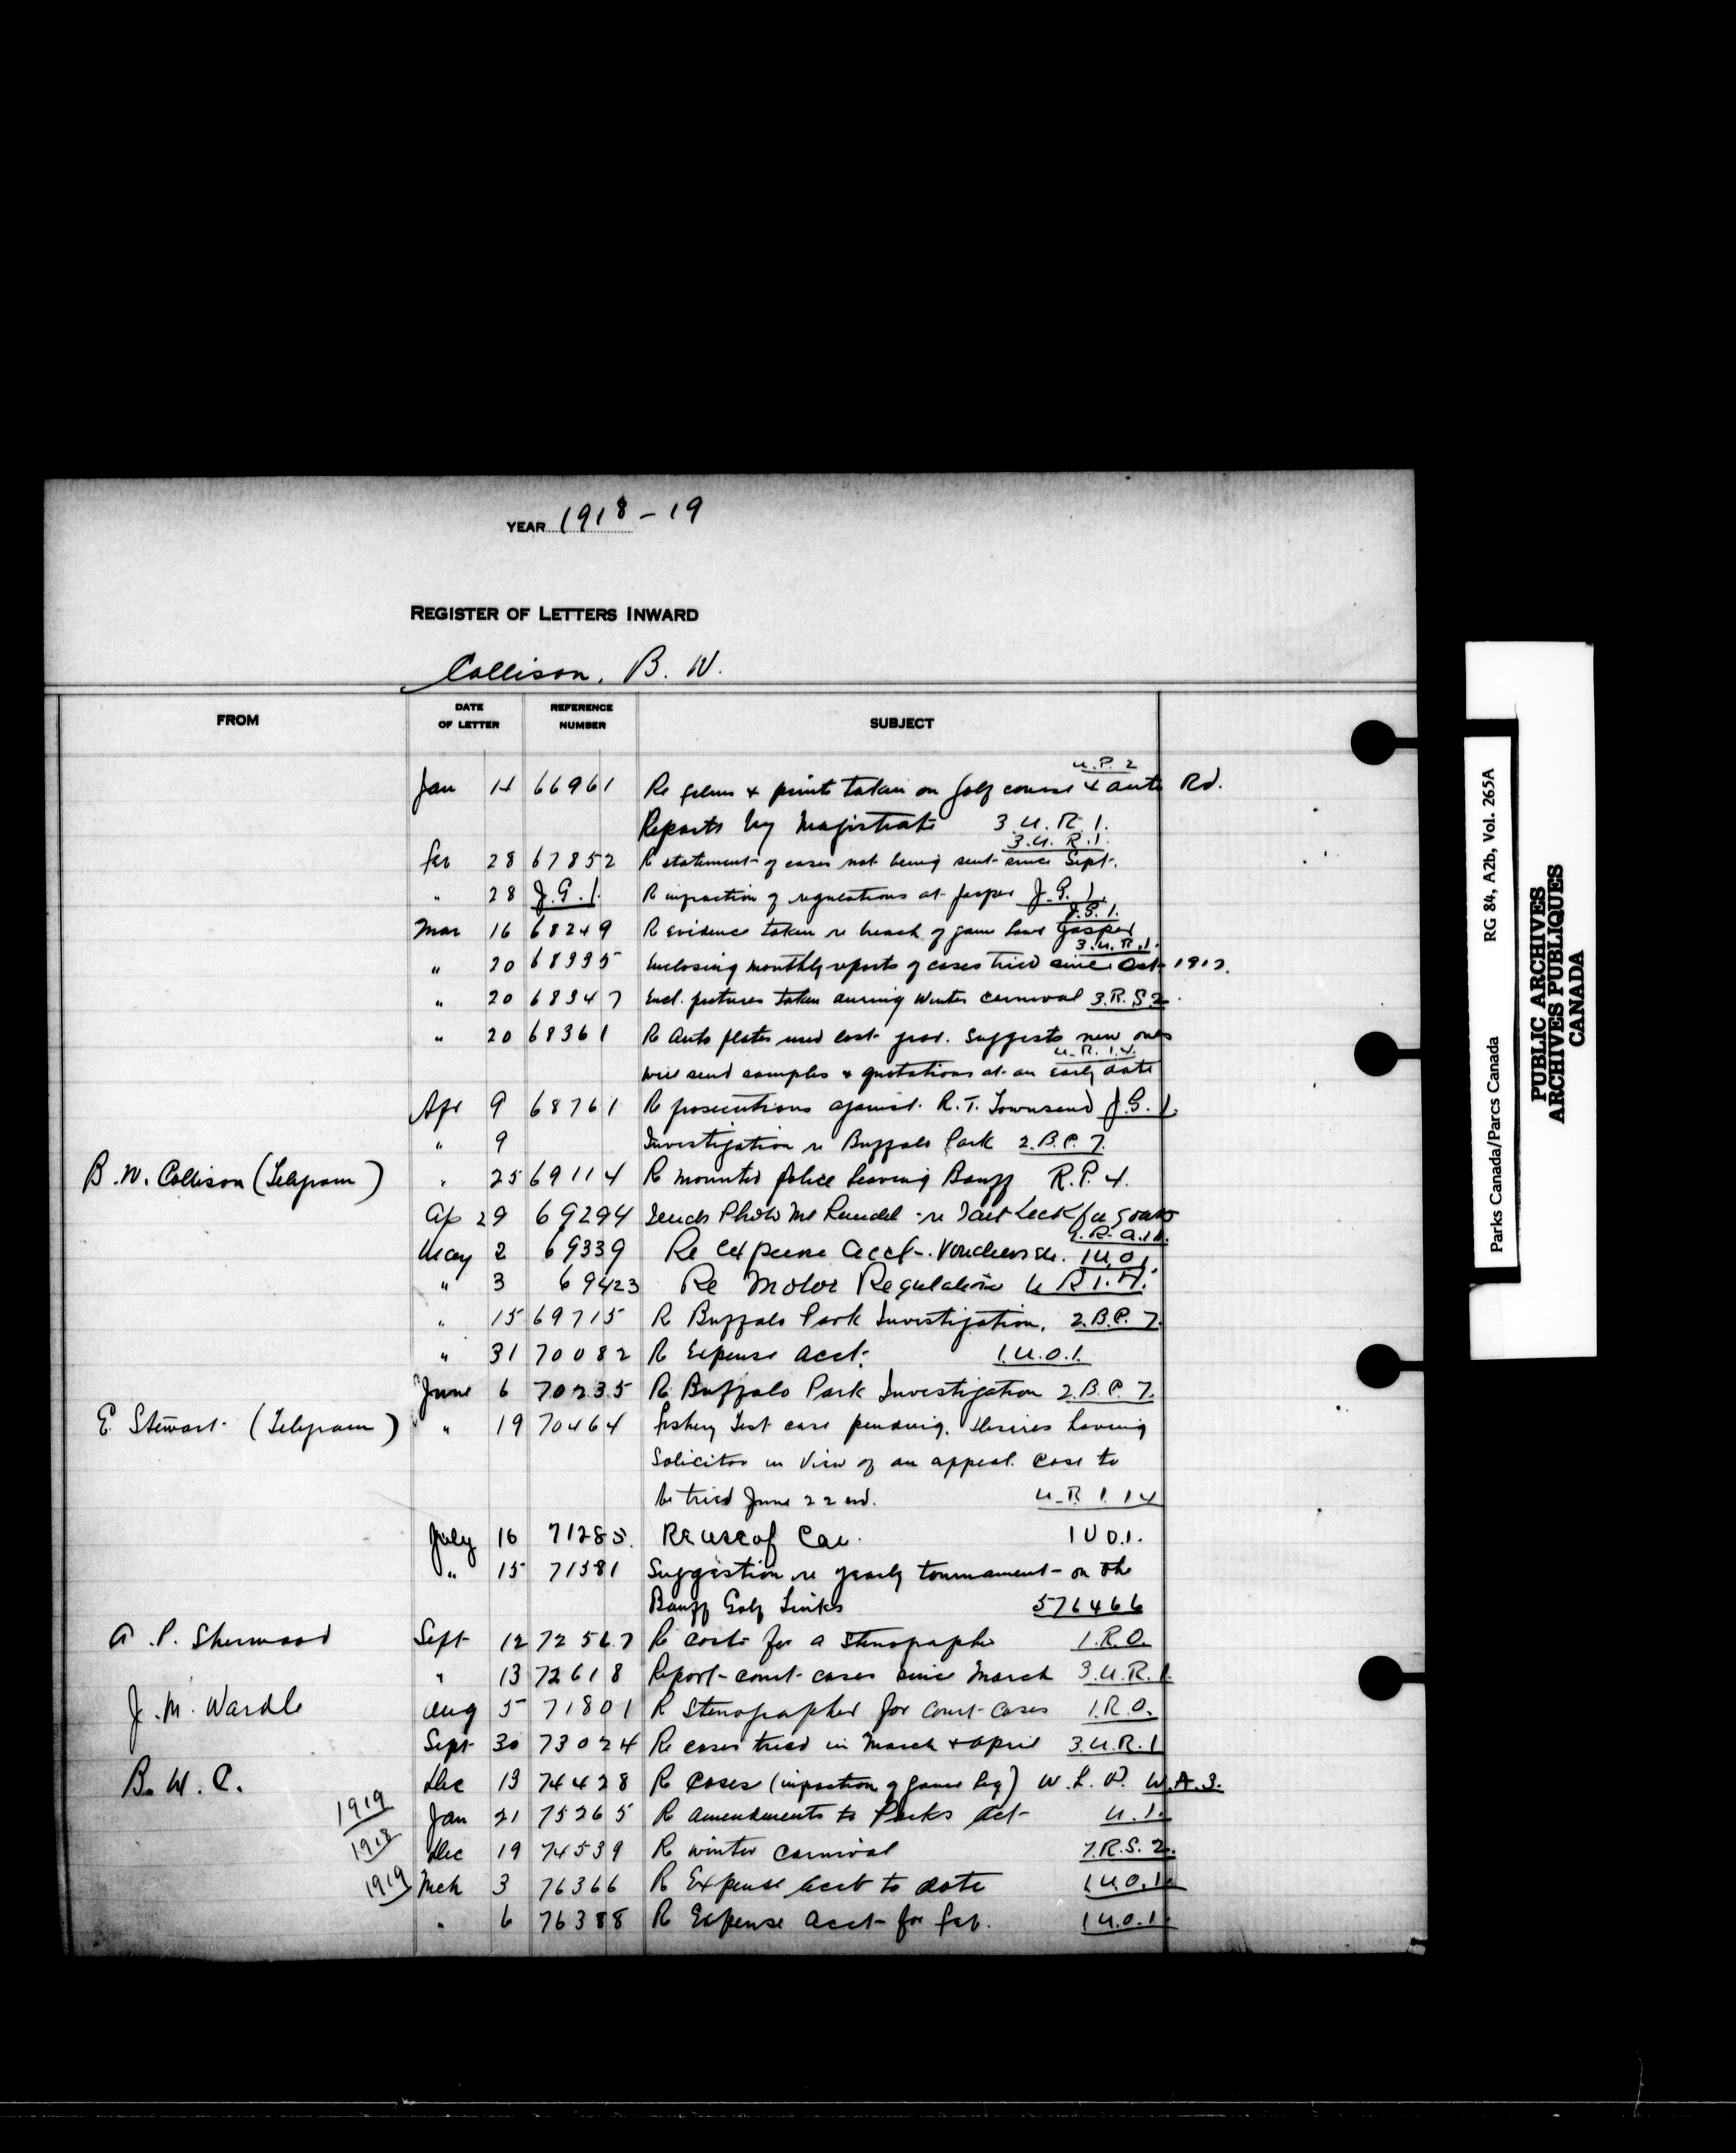 YEAR 1918-19
REGISTER OF LETTERS INWARD
Collison, B. W.
FROM DATE OF LETTER REFERENCE NUMBER SUBJECT
U.P. 2
Jan 14 66961 Re films & prints taken on Golf course & auto Rd.
Reports by Magistrate 3.U.R.1.
3.U.R.1.
Feb 28 67852 Re statement of cases not being sent since Sept.
" 28 J.G.1. Re infraction of regulations at Jasper J.G.1.
J.G.1.
Mar 16 68249 Re evidence taken re breach of game laws Jasper
3.U.R.1.
" 20 68335 Enclosing monthly reports of cases tried since Oct 1917.
" 20 68347 Encl. pictures taken during Winter carnival 3.R.S.2.
" 20 68361 Re Auto plates used last year. Suggests new ones
U.R.1.4.
will send samples & quotations at an early date
Apr 9 68761 Re prosecutions against R.T. Townsend J.G.1.
" 9 Investigation re Buffalo Park 2.B.P.7.
B.W. Collison (Telegram) " 25 69114 Re mounted police leaving Banff R.P.4.
Ap 29 69294 Sends Photo Mt Rundel re
May 2 69339 Re expense acct. Vouchers 1U01.
" 3 69423 Re Motor Regulations
" 15 69715 Re Buffalo Park Investigation. 2.B.P.7.
" 31 70082 Re Expense acct. 1.U.0.1.
June 6 70235 Re Buffalo Park Investigation 2.B.P.7.
E. Stewart (Telegram) " 19 70464 fishery Test case pending. Desires having
Solicitor in view of an appeal. Case to
be tried June 22nd. U.R.1.14
July 16 71285. Re use of Car. 1U01.
" 15 71381 Suggestion re yearly tournament on the
Banff Golf Links 576466
A.P. Sherwood Sept 12 72567 Re costs for a stenographer 1.R.O.
" 13 72618 Report court cases since March 3.U.R.1.
J.M. Wardle Aug 5 71801 Re Stenographer for court cases 1.R.O.
Sept 30 73024 Re cases tried in March & April 3.U.R.1
B.W.C. Dec 13 74428 Re Cases (infraction of Game Reg) W.L.P. W.A.3.
1919 Jan 21 75265 Re amendments to Parks Act U.1.
1918 Dec 19 74539 Re winter carnival 7.R.S.2.
1919 Mch 3 76366 Re Expense acct to date 1.U.0.1.
" 6 76388 Re Expense Acct for Feb. 1U.0.1.
Parks Canada/Parcs Canada RG 84, A2b, Vol. 265A
PUBLIC ARCHIVES
ARCHIVES PUBLIQUES
CANADA